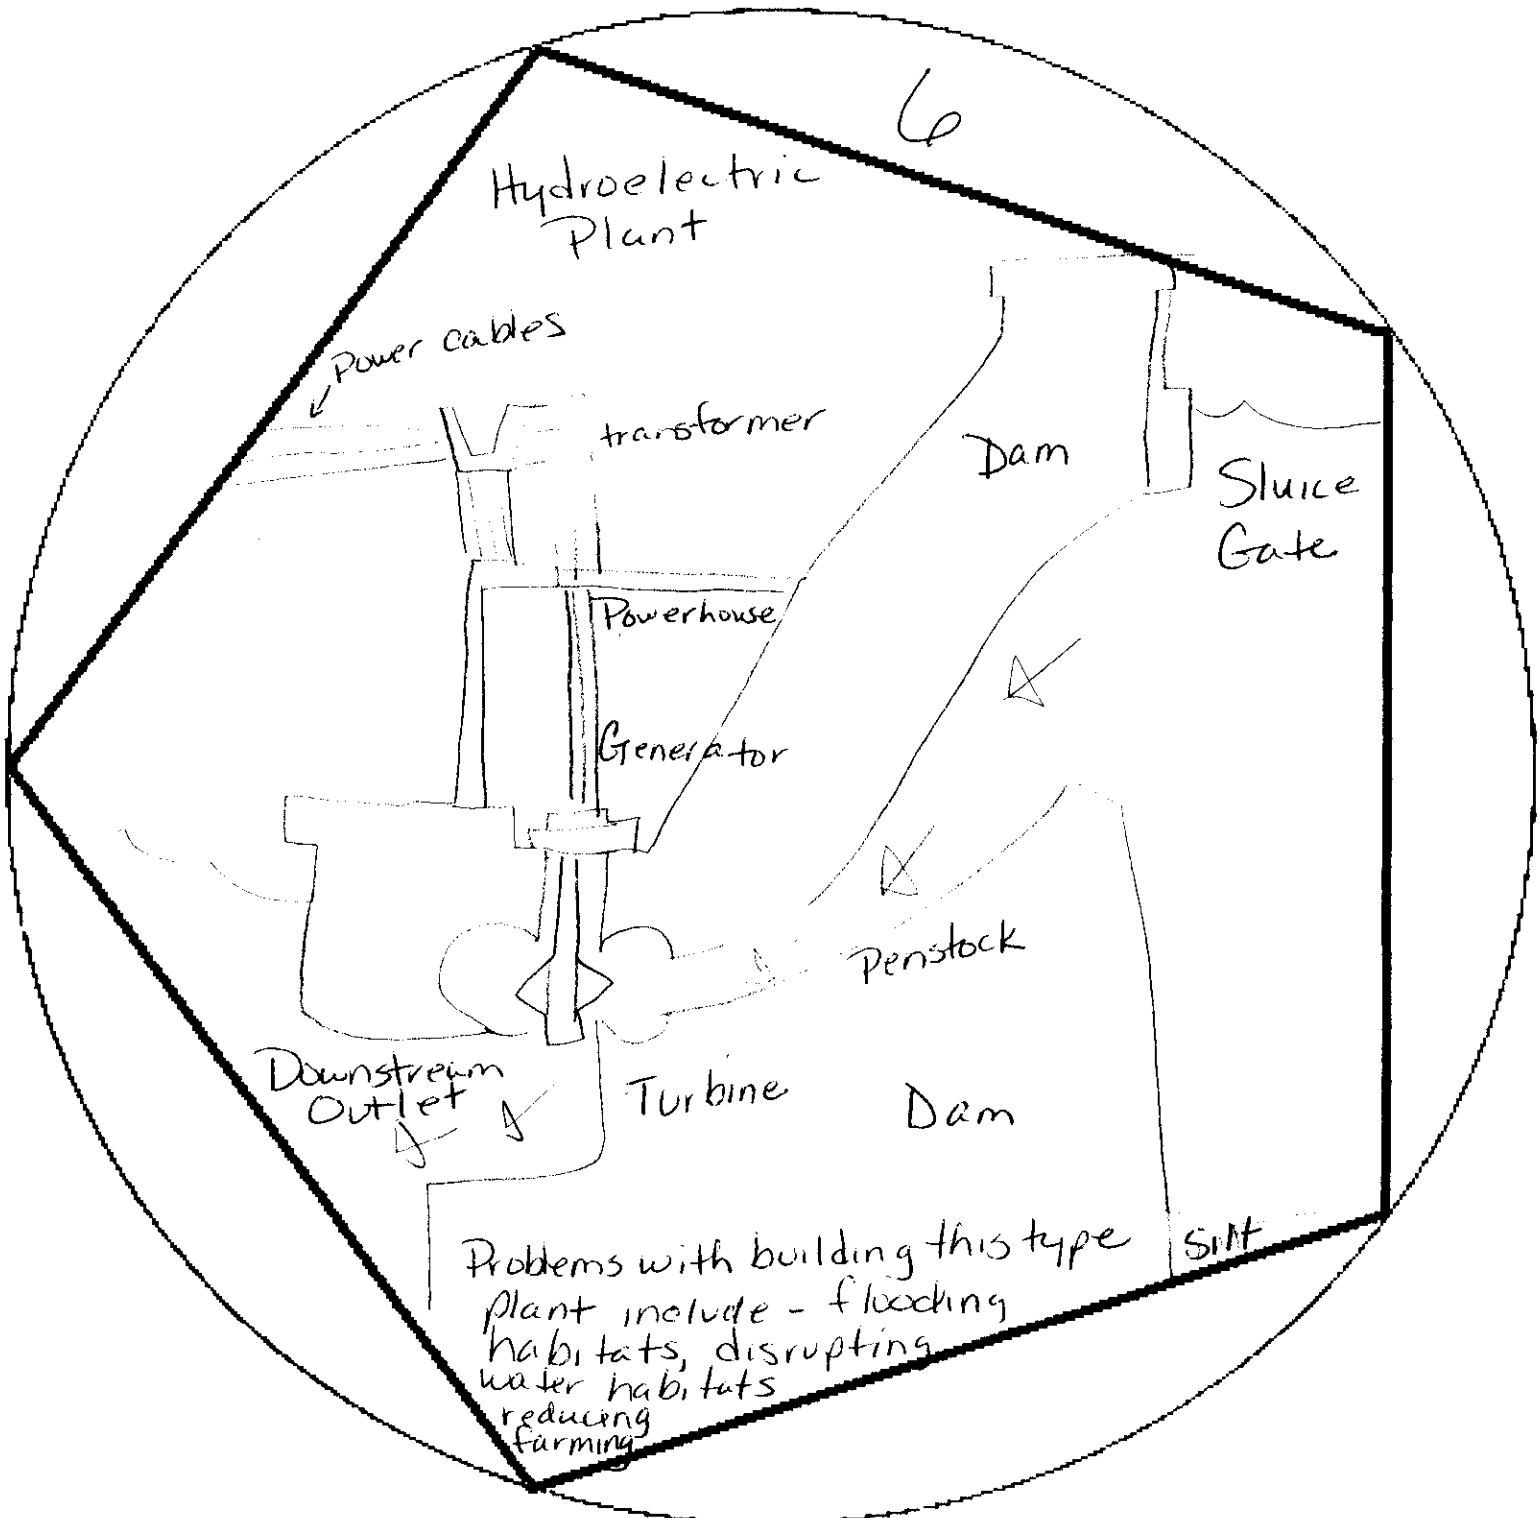 6
Hydroelectric
Plant
Power cables
transformer
Dam
Sluice
Gate
Powerhouse
Generator
Penstock
Downstream
Outlet
Turbine
Dam
Problems with building this type
plant include - flooding
habitats, disrupting
water habitats
reducing
farming
silt